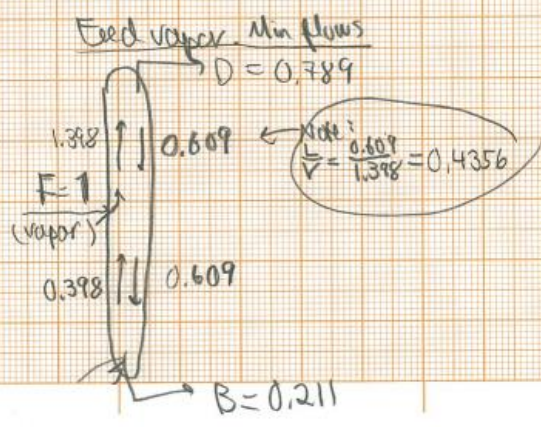 Feed vapor. Min flows
D = 0.789
1.398 0.609 Note:
L/V = 0.609/1.398 = 0,4356
F=1
(vapor)
0.398 0.609
B = 0.211